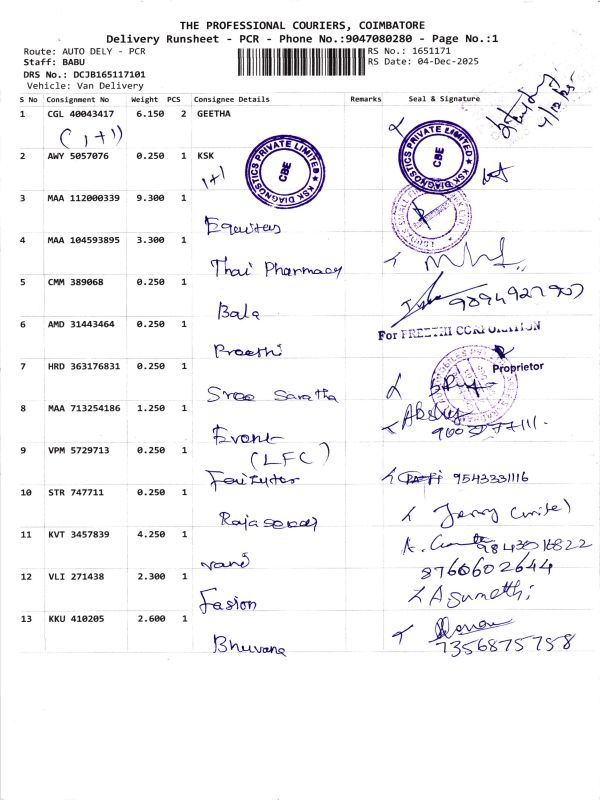 THE PROFESSIONAL COURIERS, COIMBATORE
Delivery Runsheet - PCR - Phone No.:9047080280 - Page No.:1
Route: AUTO DELY - PCR RS No.: 1651171
Staff: BABU RS Date: 04-Dec-2025
DRS No.: DCJB165117101
Vehicle: Van Delivery
S No Consignment No Weight PCS Consignee Details Remarks Seal & Signature
4/12/25
1 CGL 40043417 6.150 2 GEETHA
(1+1)
2 AWY 5057076 0.250 1 KSK
1+1
KSK DIAGNOSTICS PRIVATE LIMITED CBE
KSK DIAGNOSTICS PRIVATE LIMITED CBE
3 MAA 112000339 9.300 1
Equitas
4 MAA 104593895 3.300 1
Thai Pharmacy
5 CMM 389068 0.250 1
Bala 9894927907
6 AMD 31443464 0.250 1 For PREETHI CORPORATION
Preethi
Proprietor
7 HRD 363176831 0.250 1
Sree Saratha
8 MAA 713254186 1.250 1
(LFC)
9 VPM 5729713 0.250 1
9543331116
10 STR 747711 0.250 1
Jenny
11 KVT 3457839 4.250 1
9843016822
vani 8760602644
12 VLI 271438 2.300 1
Fasion A Sumathi
13 KKU 410205 2.600 1
Bhuvana 7356875758